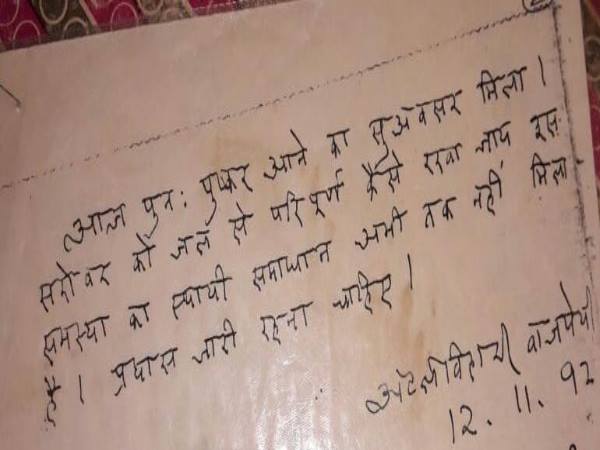 आज पुनः पुष्कर आने का सुअवसर मिला।
सरोवर को जल से परिपूर्ण कैसे रखा जाय इस
समस्या का स्थायी समाधान अभी तक नहीं मिला
है। प्रयास जारी रहना चाहिए।
अटल बिहारी वाजपेयी
12.11.92